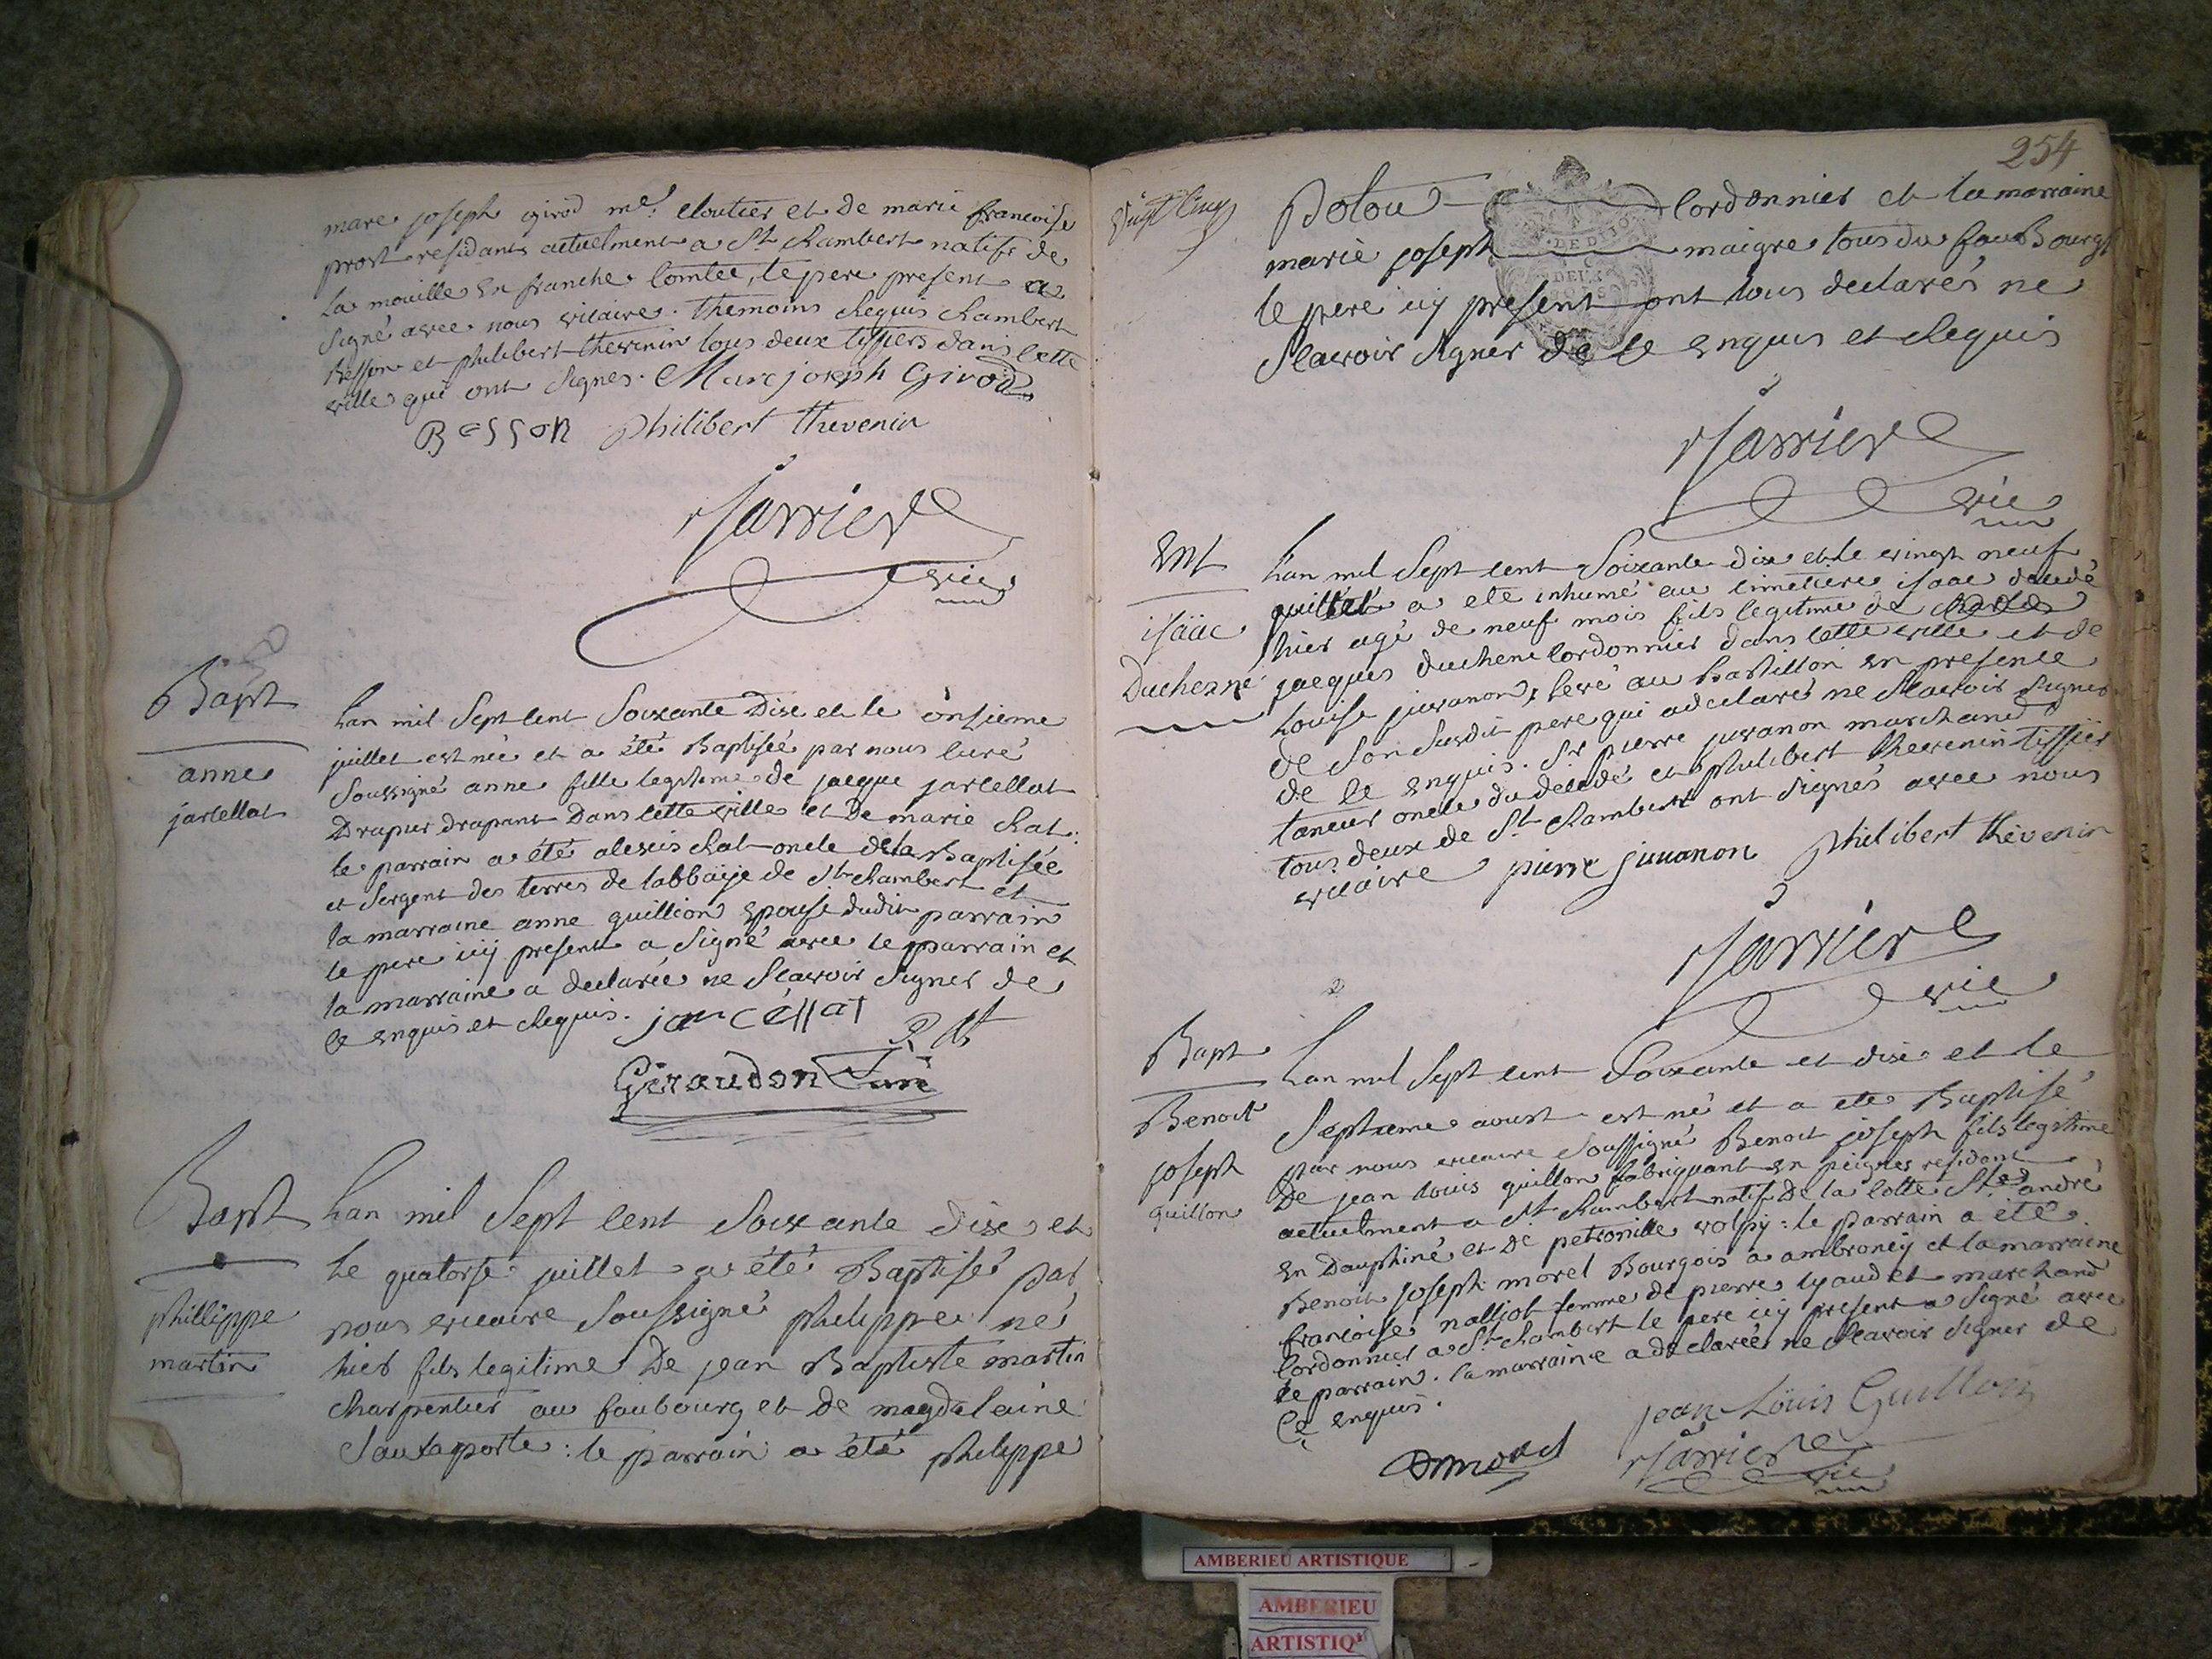 marc joseph girod me. cloutier et de marie francoise
prost residants actuelment a St Rambert natifs de
la mouille en franche Comtée, le pere present a
signé avec nous vicaire. themoins Requis Rambert
Besson et philibert thevenin tous deux tissiers dans cette
ville qui ont signes. Marc joseph Girod
Besson philibert thevenin
Jarrier
vic
Bapt
anne
jarcellat
Lan mil Sept Cent Soixante Dix et le onsieme
juillet est née et a été Baptisée par nous curé
soussigné anne fille legitime de jacque jarcellat
Drapier drapant Dans cette ville et De marie Rat:
le parrain a été alexis Rat oncle de la Baptisée
et sergent des terres de labbaïje de St Rambert et
la marraine anne guillion epouse dudit parrain
le pere icij present a signé avec le parrain et
la marraine a declarée ne scavoir signer de
ce enquis et Requis. jarcéllat
Rat
Giraudon Curé
Bapt
phillippe
martin
Lan mil Sept Cent Soixante Dix et
le quatorse juillet a été Baptisé par
nous vicaire soussigné philippe né
hier fils legitime De jean Baptiste martin
Charpentier au faubourg et de magdelaine
Sautaporte: le parrain a été philippe
254
Vingt Cinq
Bolou Cordonnier et la marraine
marie joseph maigre tous du fauBourg
le pere icij present ont tous declarés ne
scavoir signer de ce enquis et Requis
Jarrier
vic
Ent
isäac
Duchesne
Lan mil Sept Cent Soixante Dix et le vingt neuf
juillet a eté inhumé au cimetiere isaac decedé
hier agé de neuf mois fils legitime de
jacques duchene Cordonnier dans cette ville et de
Louise juvanon, levé au Bastillon en presence
de son susdit pere qui a declaré ne scavoir signer
de ce enquis. Sr pierre juvanon marchand
taneur oncle du decedé et philibert thevenin tissier
tous deux de St Rambert ont signés avec nous
vicaire pierre juuanon philibert thevenin
Jarrier
vic
Bapt
Benoit
joseph
guillon
Lan mil Sept Cent Soixante et dix et le
Septieme aoust est né et a eté Baptisé
par nous vicaire soussigné Benoit joseph fils legitime
De jean Louis guillon fabriquant en peignes residant
actuelment a St Rambert natif De la Cotte St andré
en Dauphiné et De petronille volpij: le parrain a été
Benoit joseph morel Bourgois a ambroneij et la marraine
francoise nalliot femme de pierre lyaudet marchand
Cordonnier a St Rambert le pere icij present a signé avec
le parrain. la marraine a declarée ne scavoir signer de
Ce enquis.
jean Loüis Guillon
morel
Jarrier
vic
AMBERIEU ARTISTIQUE
AMBERIEU
ARTISTIQ